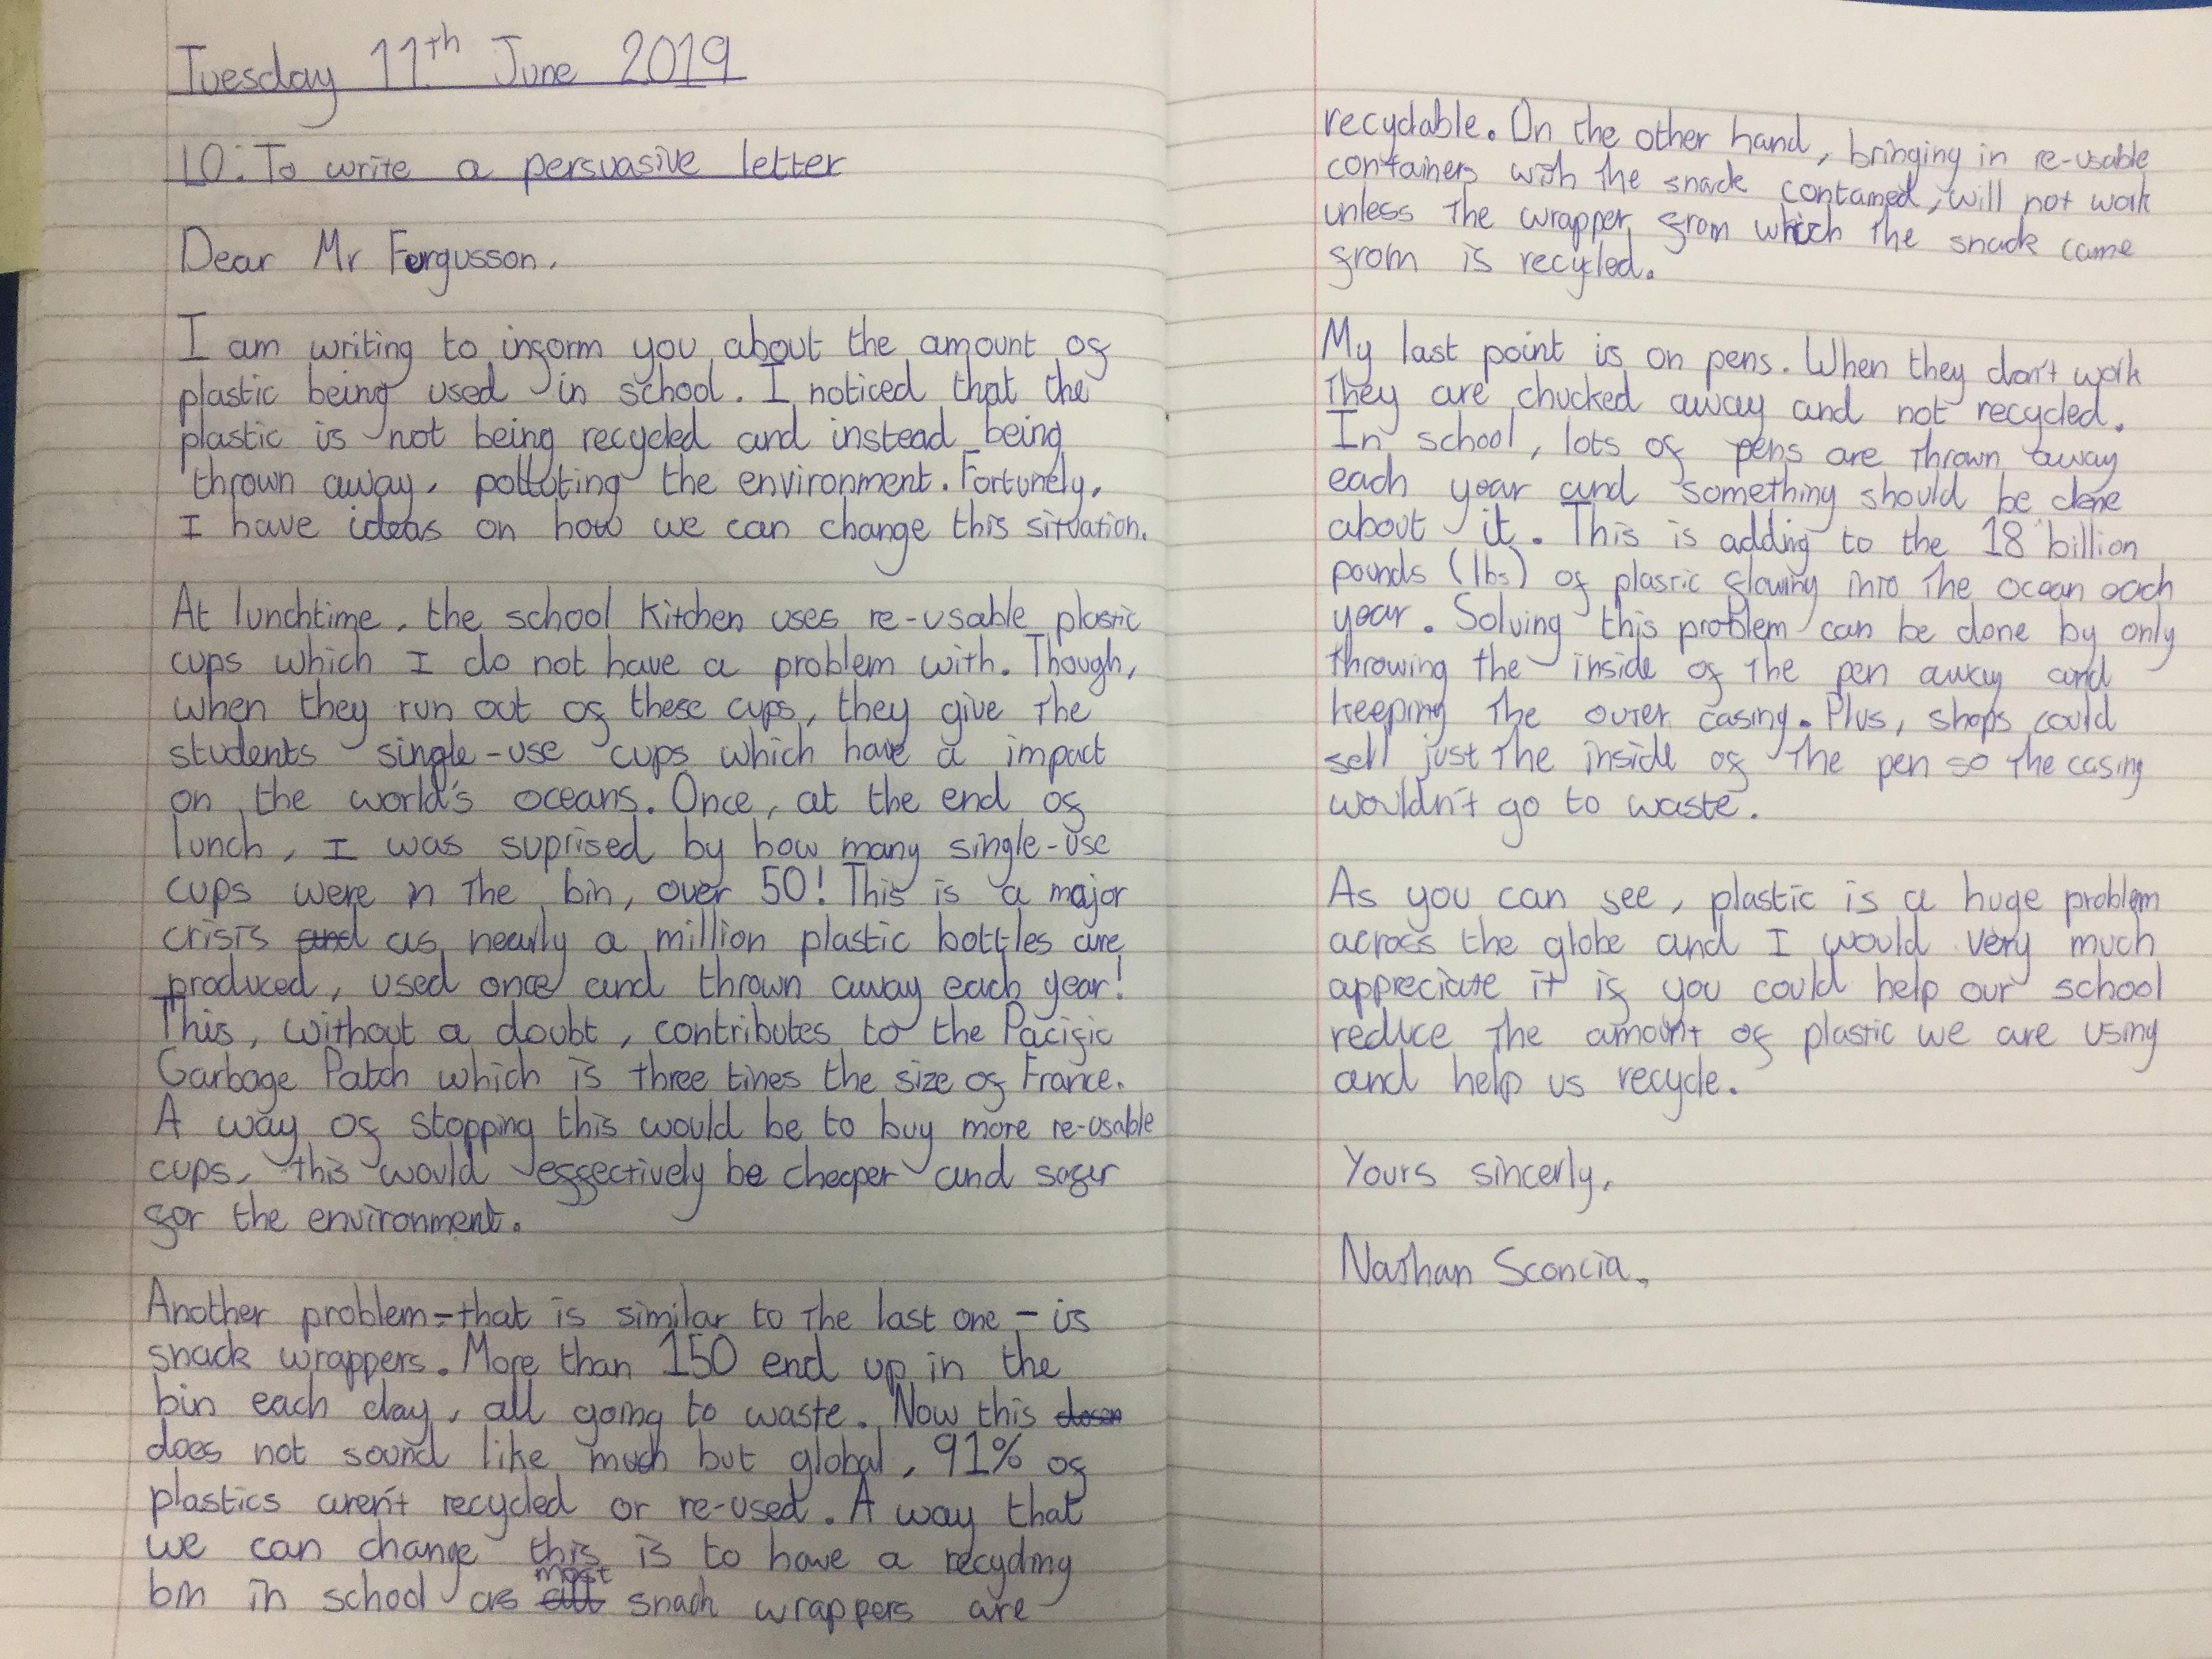 Tuesday 11th June 2019
LO: To write a persuasive letter
Dear Mr Fergusson,
I am writing to inform you about the amount of
plastic being used in school. I noticed that the
plastic is not being recycled and instead being
thrown away, polluting the environment. Fortunely,
I have ideas on how we can change this situation.
At lunchtime, the school kitchen uses re-usable plastic
cups which I do not have a problem with. Though,
when they run out of these cups, they give the
students single-use cups which have a impact
on the world's oceans. Once, at the end of
lunch, I was suprised by how many single-use
cups were in the bin, over 50! This is a major
crisis and as nearly a million plastic bottles are
produced, used once and thrown away each year!
This, without a doubt, contributes to the Pacific
Garbage Patch which is three times the size of France.
A way of stopping this would be to buy more re-usable
cups, this would effectively be cheeper and safer
for the environment.
Another problem - that is similar to the last one - is
snack wrappers. More than 150 end up in the
bin each day, all going to waste. Now this
does not sound like much but global, 91% of
plastics aren't recycled or re-used. A way that
we can change this is to have a recycling
most
bin in school as all snack wrappers are
recyclable. On the other hand, bringing in re-usable
containers with the snack contained, will not work
unless the wrapper from which the snack came
from is recycled.
My last point is on pens. When they don't work
they are chucked away and not recycled.
In school, lots of pens are thrown away
each year and something should be done
about it. This is adding to the 18 billion
pounds (lbs) of plastic flowing into the ocean each
year. Solving this problem can be done by only
throwing the inside of the pen away and
keeping the outer casing. Plus, shops could
sell just the inside of the pen so the casing
wouldn't go to waste.
As you can see, plastic is a huge problem
across the globe and I would very much
appreciate it if you could help our school
reduce the amount of plastic we are using
and help us recycle.
Yours sincerly,
Nathan Sconcia.